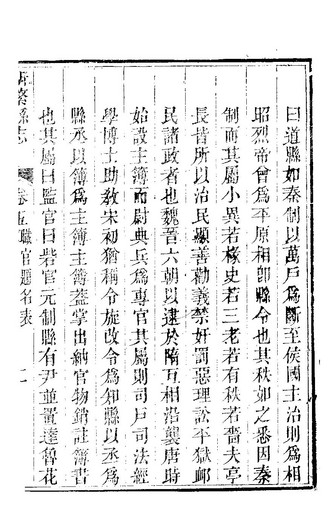 曰道縣如秦制以萬戶爲斷至侯國主治則爲相
昭烈帝曾爲平原相卽縣令也其秩如之悉因秦
制而其屬小異若椽史若三老若有秩若嗇夫亭
長皆所以治民顯善勸義禁奸罰惡理訟平獄卹
民諸政者也魏晉六朝以逮於隋互相沿襲唐時
始設主簿而尉典兵爲專官其屬則司戶司法經
學博士助敎宋初猶稱令旋改令爲知縣以丞爲
縣丞以簿爲主簿主簿葢掌出納官物銷註簿書
也其屬曰監官曰砦官元制縣有尹並置達魯花
縣志
卷五職官題名表
二